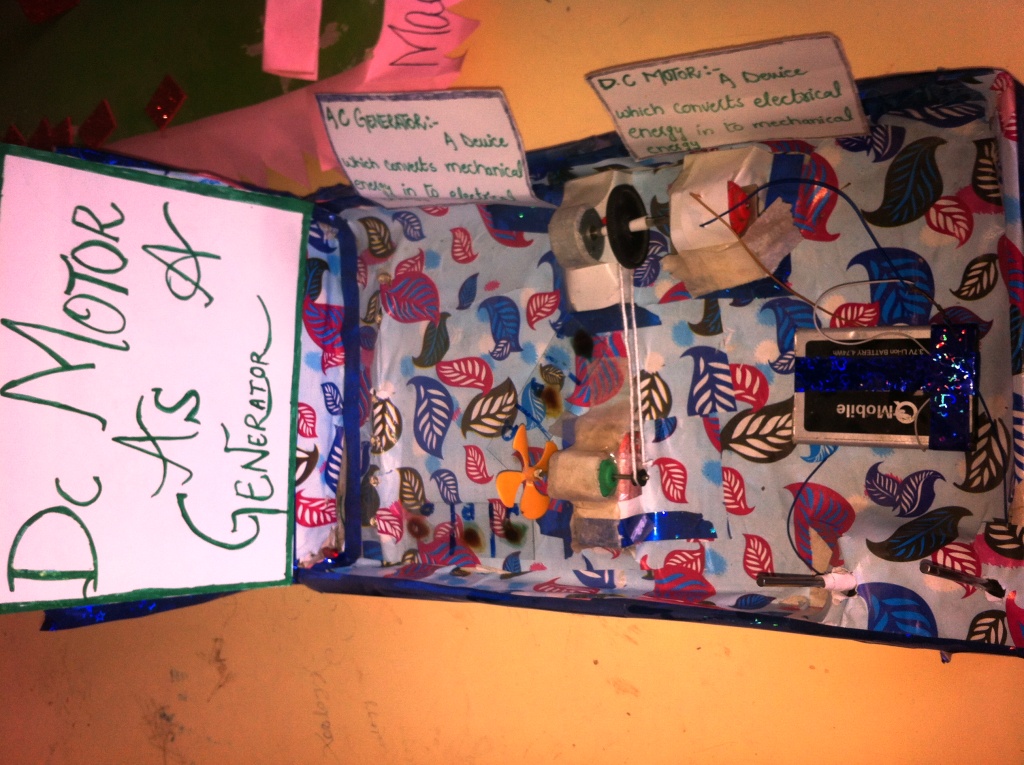 DC MOTOR
AS A
GENERATOR
A/C GENERATOR:- A Device
which converts mechanical
energy in to
Ma
D.C MOTOR:- A Device
which converts electrical
energy in to mechanical
energy
QMobile
3.7V Li-ion BATTERY 4.74Wh